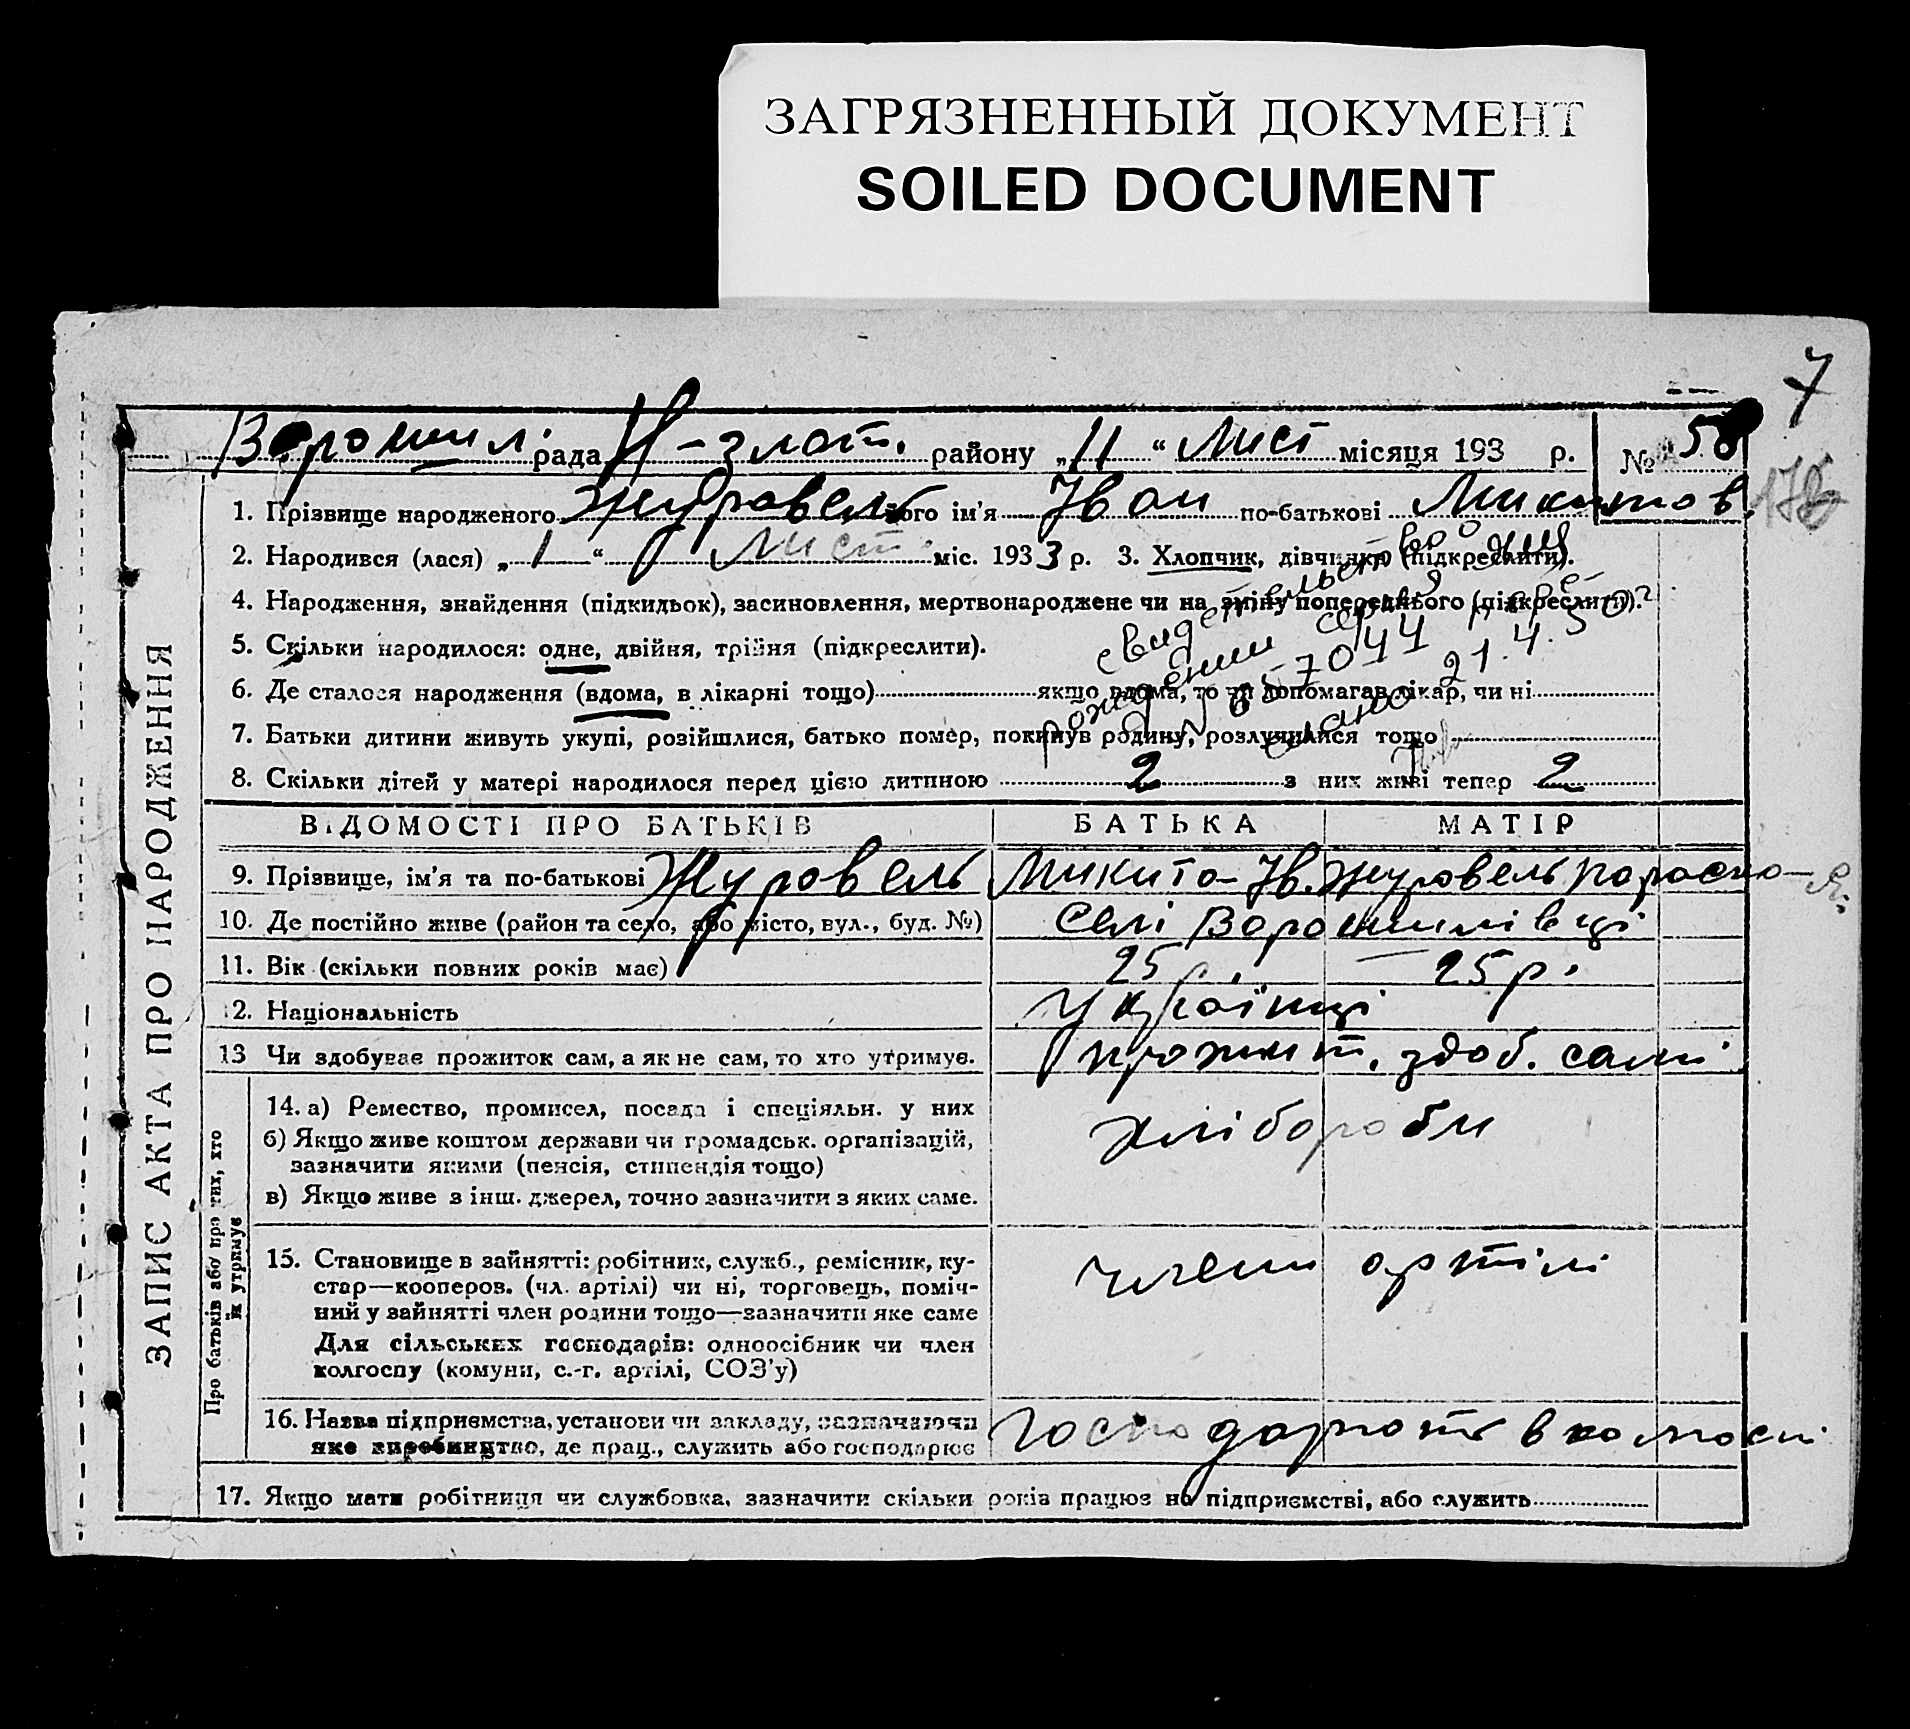 ЗАГРЯЗНЕННЫЙ ДОКУМЕНТ
SOILED DOCUMENT
7
Ворошил. рада Н-злат. району „11“ Лист місяця 193 р. № 58
178
ЗАПИС АКТА ПРО НАРОДЖЕННЯ
1. Прізвище народженого Журавель його ім'я Іван по-батькові Микитов.
2. Народився (лася) „1“ Лист. міс. 1933 р. 3. Хлопчик, дівчинка (підкреслити).
4. Народження, знайдення (підкидьок), засиновлення, мертвонароджене чи на зміну попереднього (підкреслити).
5. Скільки народилося: одне, двійня, трійня (підкреслити).
6. Де сталося народження (вдома, в лікарні тощо) якщо вдома, то чи допомагав лікар, чи ні
7. Батьки дитини живуть укупі, розійшлися, батько помер, покинув родину, розлучилися тощо
8. Скільки дітей у матері народилося перед цією дитиною 2 з них живі тепер 2
свидетельство о
рождении серия
21.4.50г
ВІДОМОСТІ ПРО БАТЬКІВ БАТЬКА МАТІР
9. Прізвище, ім'я та по-батькові Журавель Микита Ів. Журавель Параска Я.
10. Де постійно живе (район та село, або місто, вул., буд. №) Селі Ворошилівці
11. Вік (скільки повних років має) 25 р. 25 р.
12. Національність Українці
13 Чи здобуває прожиток сам, а як не сам, то хто утримує. прожит. здоб. самі
Про батьків або про тих, хто їх утримує
14. а) Ремество, промисел, посада і спеціяльн. у них хлібороби
б) Якщо живе коштом держави чи громадськ. організацій,
зазначити якими (пенсія, стипендія тощо)
в) Якщо живе з інш. джерел, точно зазначити з яких саме.
15. Становище в зайнятті: робітник, служб., ремісник, ку-
стар—кооперов. (чл. артілі) чи ні, торговець, поміч-
ний у зайнятті член родини тощо—зазначити яке саме
Для сільських господарів: одноосібник чи член
колгоспу (комуни, с.-г. артілі, СОЗ'у)
члени артілі
16. Назва підприємства, установи чи закладу, зазначаючи
яке виробництво, де прац., служить або господарює
господарють в колгоспі
17. Якщо мати робітниця чи службовка, зазначити скільки років працює на підприємстві, або служить